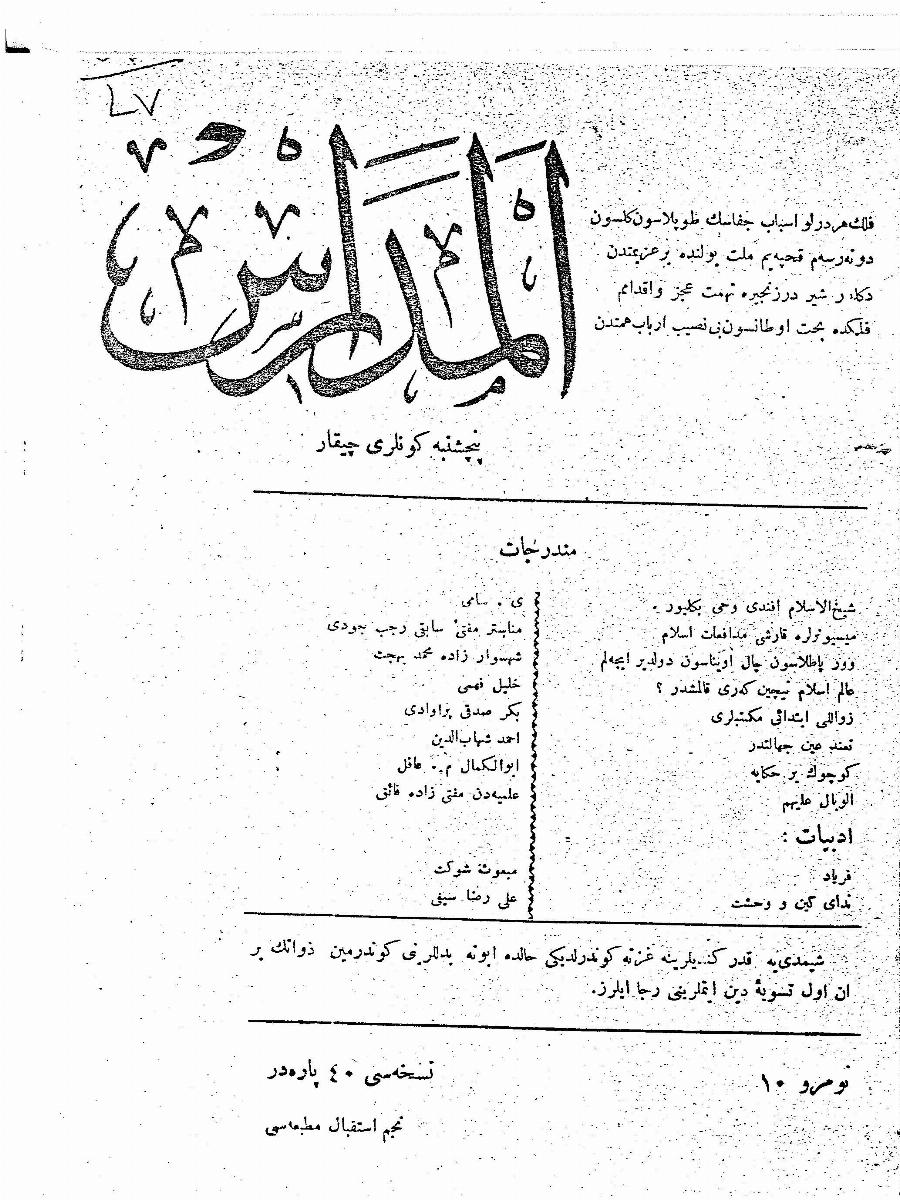 المدارس
فلك هر درلو اسباب جفاسك طوپلاسون كلسون
دونه‌رسه‌م قحپه‌یم ملت یولنده بر عزیمتدن
شیر در زنجیره تهمت عجز و اقدامم
فلكده بخت اوطانسون بی نصیب ارباب همتدن
پنچشنبه كونلری چیقار
مندرجات
شیخ‌الاسلام افندی وحی بكلیور . ی . سامی
میسیونرلره قارشی مدافعات اسلام مناستر مفتئ سابقی رجب جودی
وور پاطلاسون چال اویناسون دولدیر ایچه‌لم شهسوار زاده محمد بهجت
عالم اسلام نیچین كه‌ری قالمشدر ؟ خلیل فهمی
زواللی ابتدائی مكتبلری بكر صدقی پراوادی
تمدن عین جهالتدر احمد شهاب‌الدین
كوچوك بر حكایه ابوالكمال م . عاقل
الوبال علیهم علمیه‌دن مفتی زاده فائق
ادبیات :
فریاد مبعوث شوكت
ندای كین و وحشت علی رضا سیفی
شیمدی‌یه قدر كندیلرینه غزته كوندرلدیكی حالده ابونه بدللرینی كوندرمین ذواتك بر
ان اول تسویهٔ دین ایتملرینی رجا ایلرز.
نومرو ١٠ نسخه‌سی ٤٠ پاره‌در
نجم استقبال مطبعه‌سی